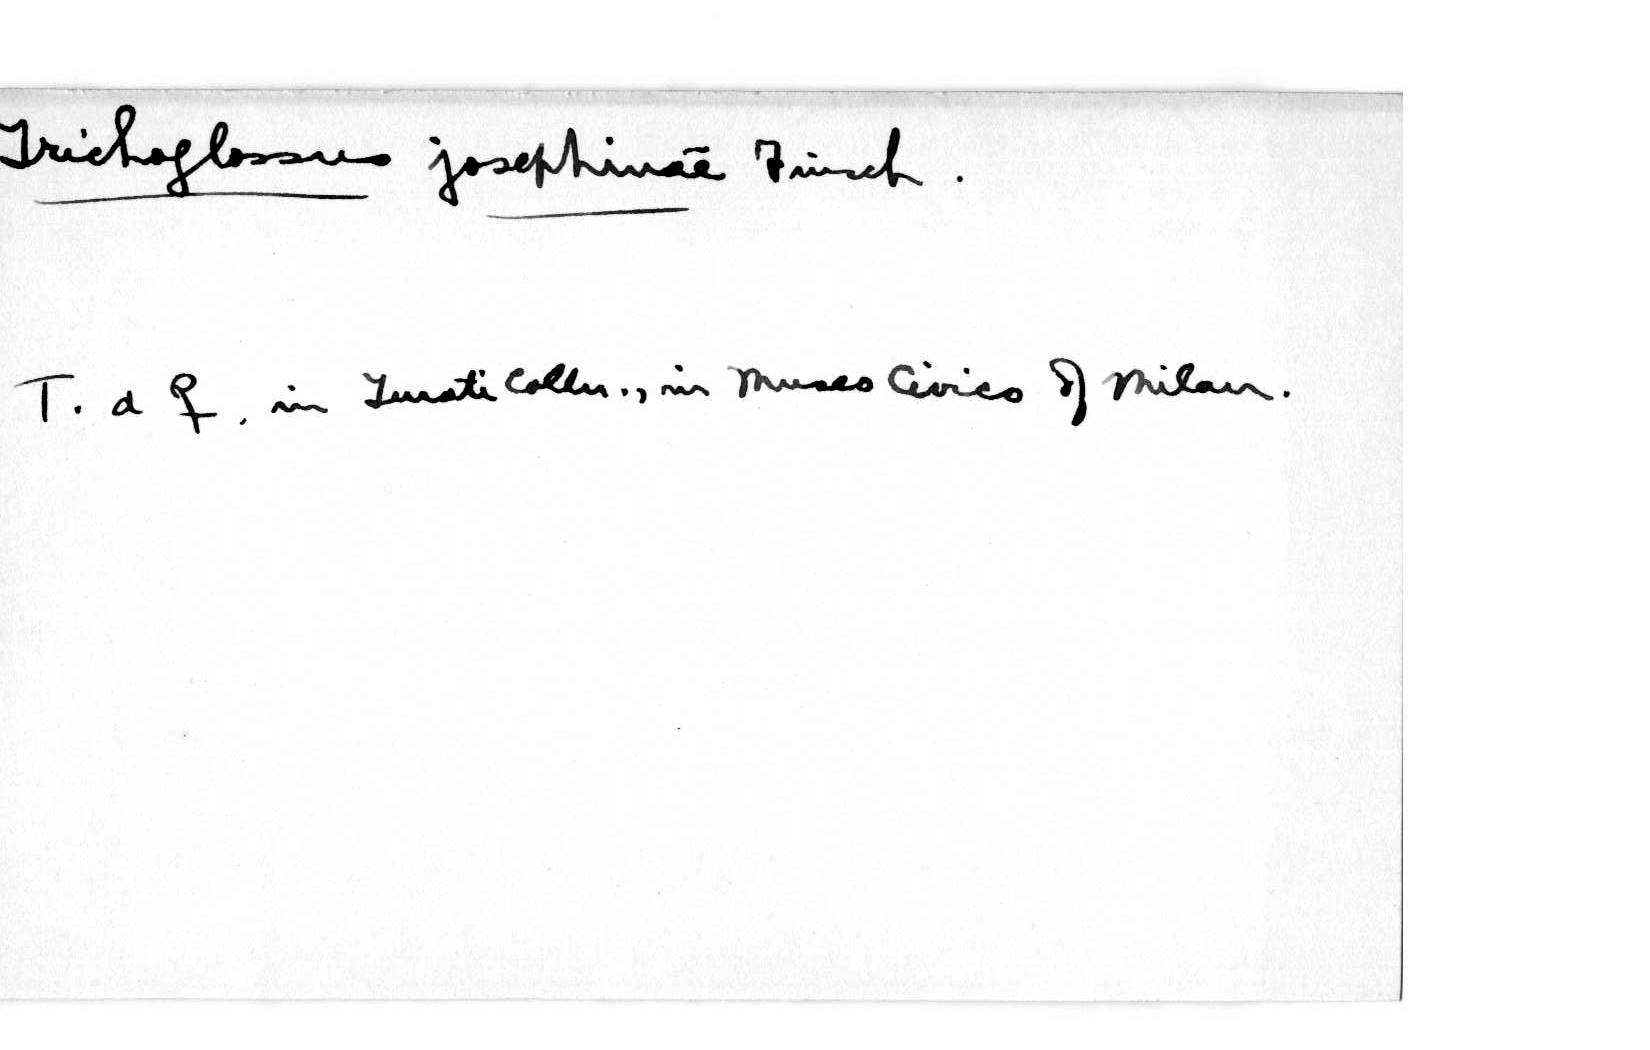 Trichoglossus josephinae Finsch.
T. d ♀, in Turati Colln., in Museo Civico of Milan.